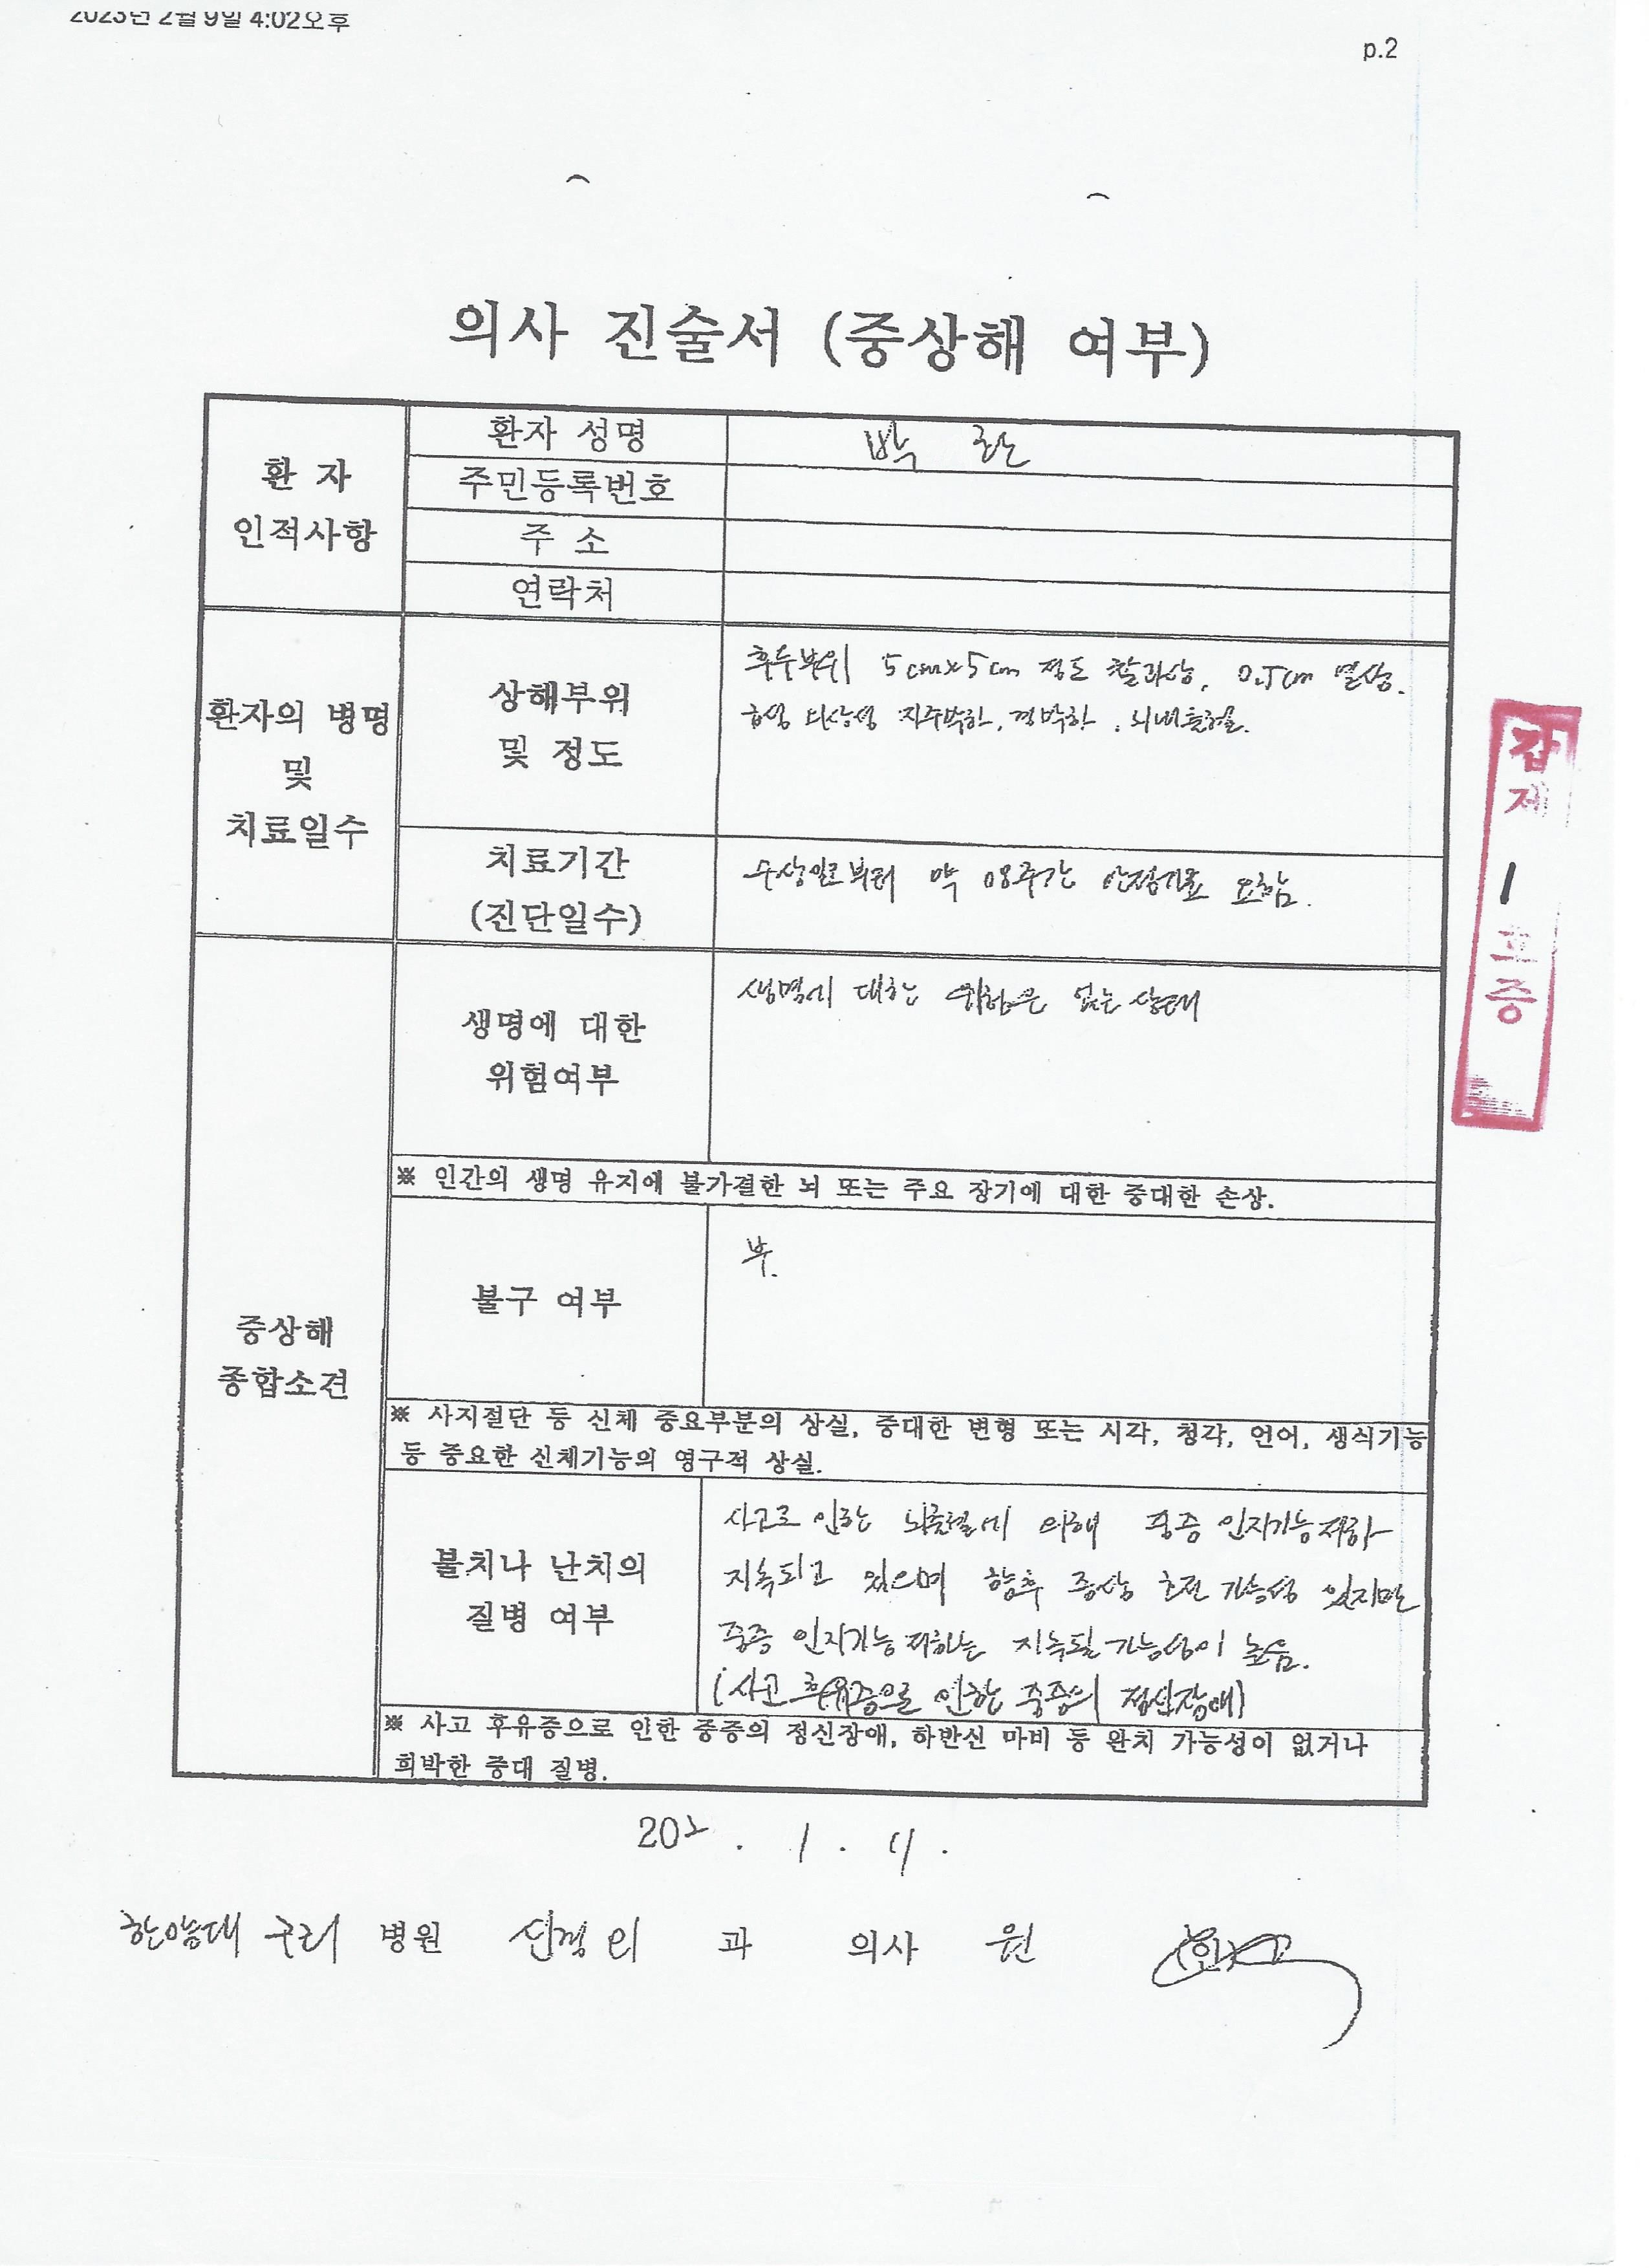 2023년 2월 9일 4:02오후
p.2
의사 진술서 (중상해 여부)
환 자
인적사항
환자 성명
박 란
주민등록번호
주 소
연락처
환자의 병명
및
치료일수
상해부위
및 정도
후두부위 5cm×5cm 정도 찰과상, 0.5cm 열상.
급성 외상성 지주막하, 경막하, 뇌내출혈.
치료기간
(진단일수)
수상일로부터 약 08주간 안정가료 요함.
중상해
종합소견
생명에 대한
위험여부
생명에 대한 위험은 없는 상태
※ 인간의 생명 유지에 불가결한 뇌 또는 주요 장기에 대한 중대한 손상.
불구 여부
부.
※ 사지절단 등 신체 중요부분의 상실, 중대한 변형 또는 시각, 청각, 언어, 생식기능
등 중요한 신체기능의 영구적 상실.
불치나 난치의
질병 여부
사고로 인한 뇌출혈에 의해 중증 인지기능저하
지속되고 있으며 향후 증상 호전 가능성 있지만
중증 인지기능저하는 지속될 가능성이 높음.
(사고 후유증으로 인한 중증의 정신장애)
※ 사고 후유증으로 인한 중증의 정신장애, 하반신 마비 등 완치 가능성이 없거나
희박한 중대 질병.
202 . 1 .
한양대 구리 병원 신경외 과 의사 원 (인)
갑
제
1
호
증